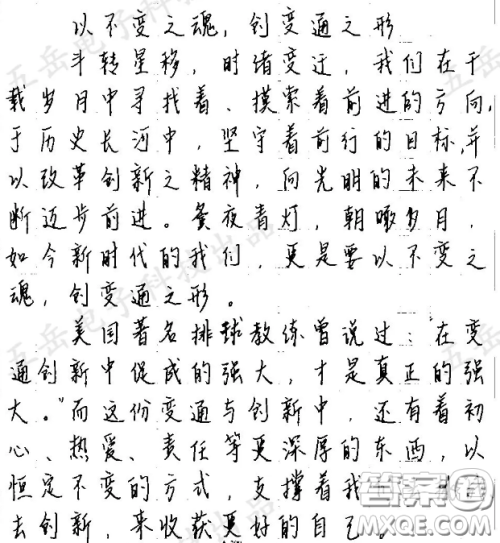 以不变之魂，创变通之形
斗转星移，时绪变迁，我们在千
载岁月中寻找着、摸索着前进的方向，
于历史长河中，坚守着前行的目标，并
以改革创新之精神，向光明的未来不
断迈步前进。餐夜青灯，朝暾岁月，
如今新时代的我们，更是要以不变之
魂，创变通之形。
美国著名排球教练曾说过："在变
通创新中促成的强大，才是真正的强
大。"而这份变通与创新中，还有着初
心、热爱、责任等更深厚的东西，以
恒定不变的方式，支撑着我
去创新，来收获更好的自己。
答案圈
MXQE.COM